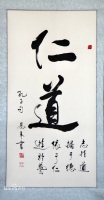 仁道
志於道
據於德
依於仁
遊於藝
孔子句
書